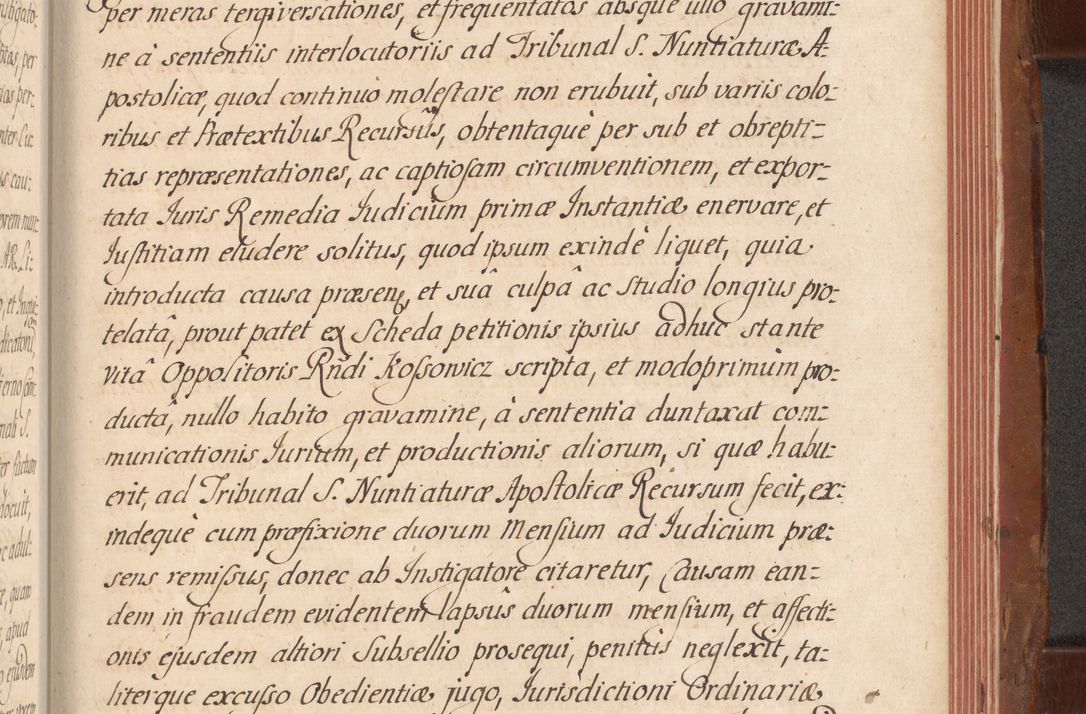 per meras tergiversationes, et frequentatos absque ullo gravami-
ne à sententiis interlocutoriis ad Tribunal S. Nuntiaturæ A-
postolicæ, quod continuo molestare non erubuit, sub variis colo-
ribus et Prætextibus Recursûs, obtentaquè per sub et obrepti-
tias repræsentationes, ac captiosam circumventionem, et expor-
tata Iuris Remedia Iudicium primæ Instantiæ enervare, et
Iustitiam eludere solitus, quod ipsum exindè liquet, quia
introducta causa præsens, et suâ culpâ ac studio longius pro-
telatâ, prout patet ex Scheda petitionis ipsius adhuc stante
vitâ Oppositoris Rñdi Kossowicz scripta, et modoprimùm pro-
ductâ, nullo habito gravamine, à sententia duntaxat com-
municationis Iurium, et productionis aliorum, si quæ habu
erit, ad Tribunal S. Nuntiaturæ Apostolicæ Recursum fecit, ex-
indequè cum præfixione duorum Mensium ad Iudicium præ-
sens remissus, donec ab Instigatore citaretur, Causam ean-
dem in fraudem evidentem lapsûs duorum mensium, et affecti-
onis ejusdem altiori Subsellio prosequi, penitùs neglexit, ta-
literque excusso Obedientiæ jugo, Iurisdictioni Ordinariæ